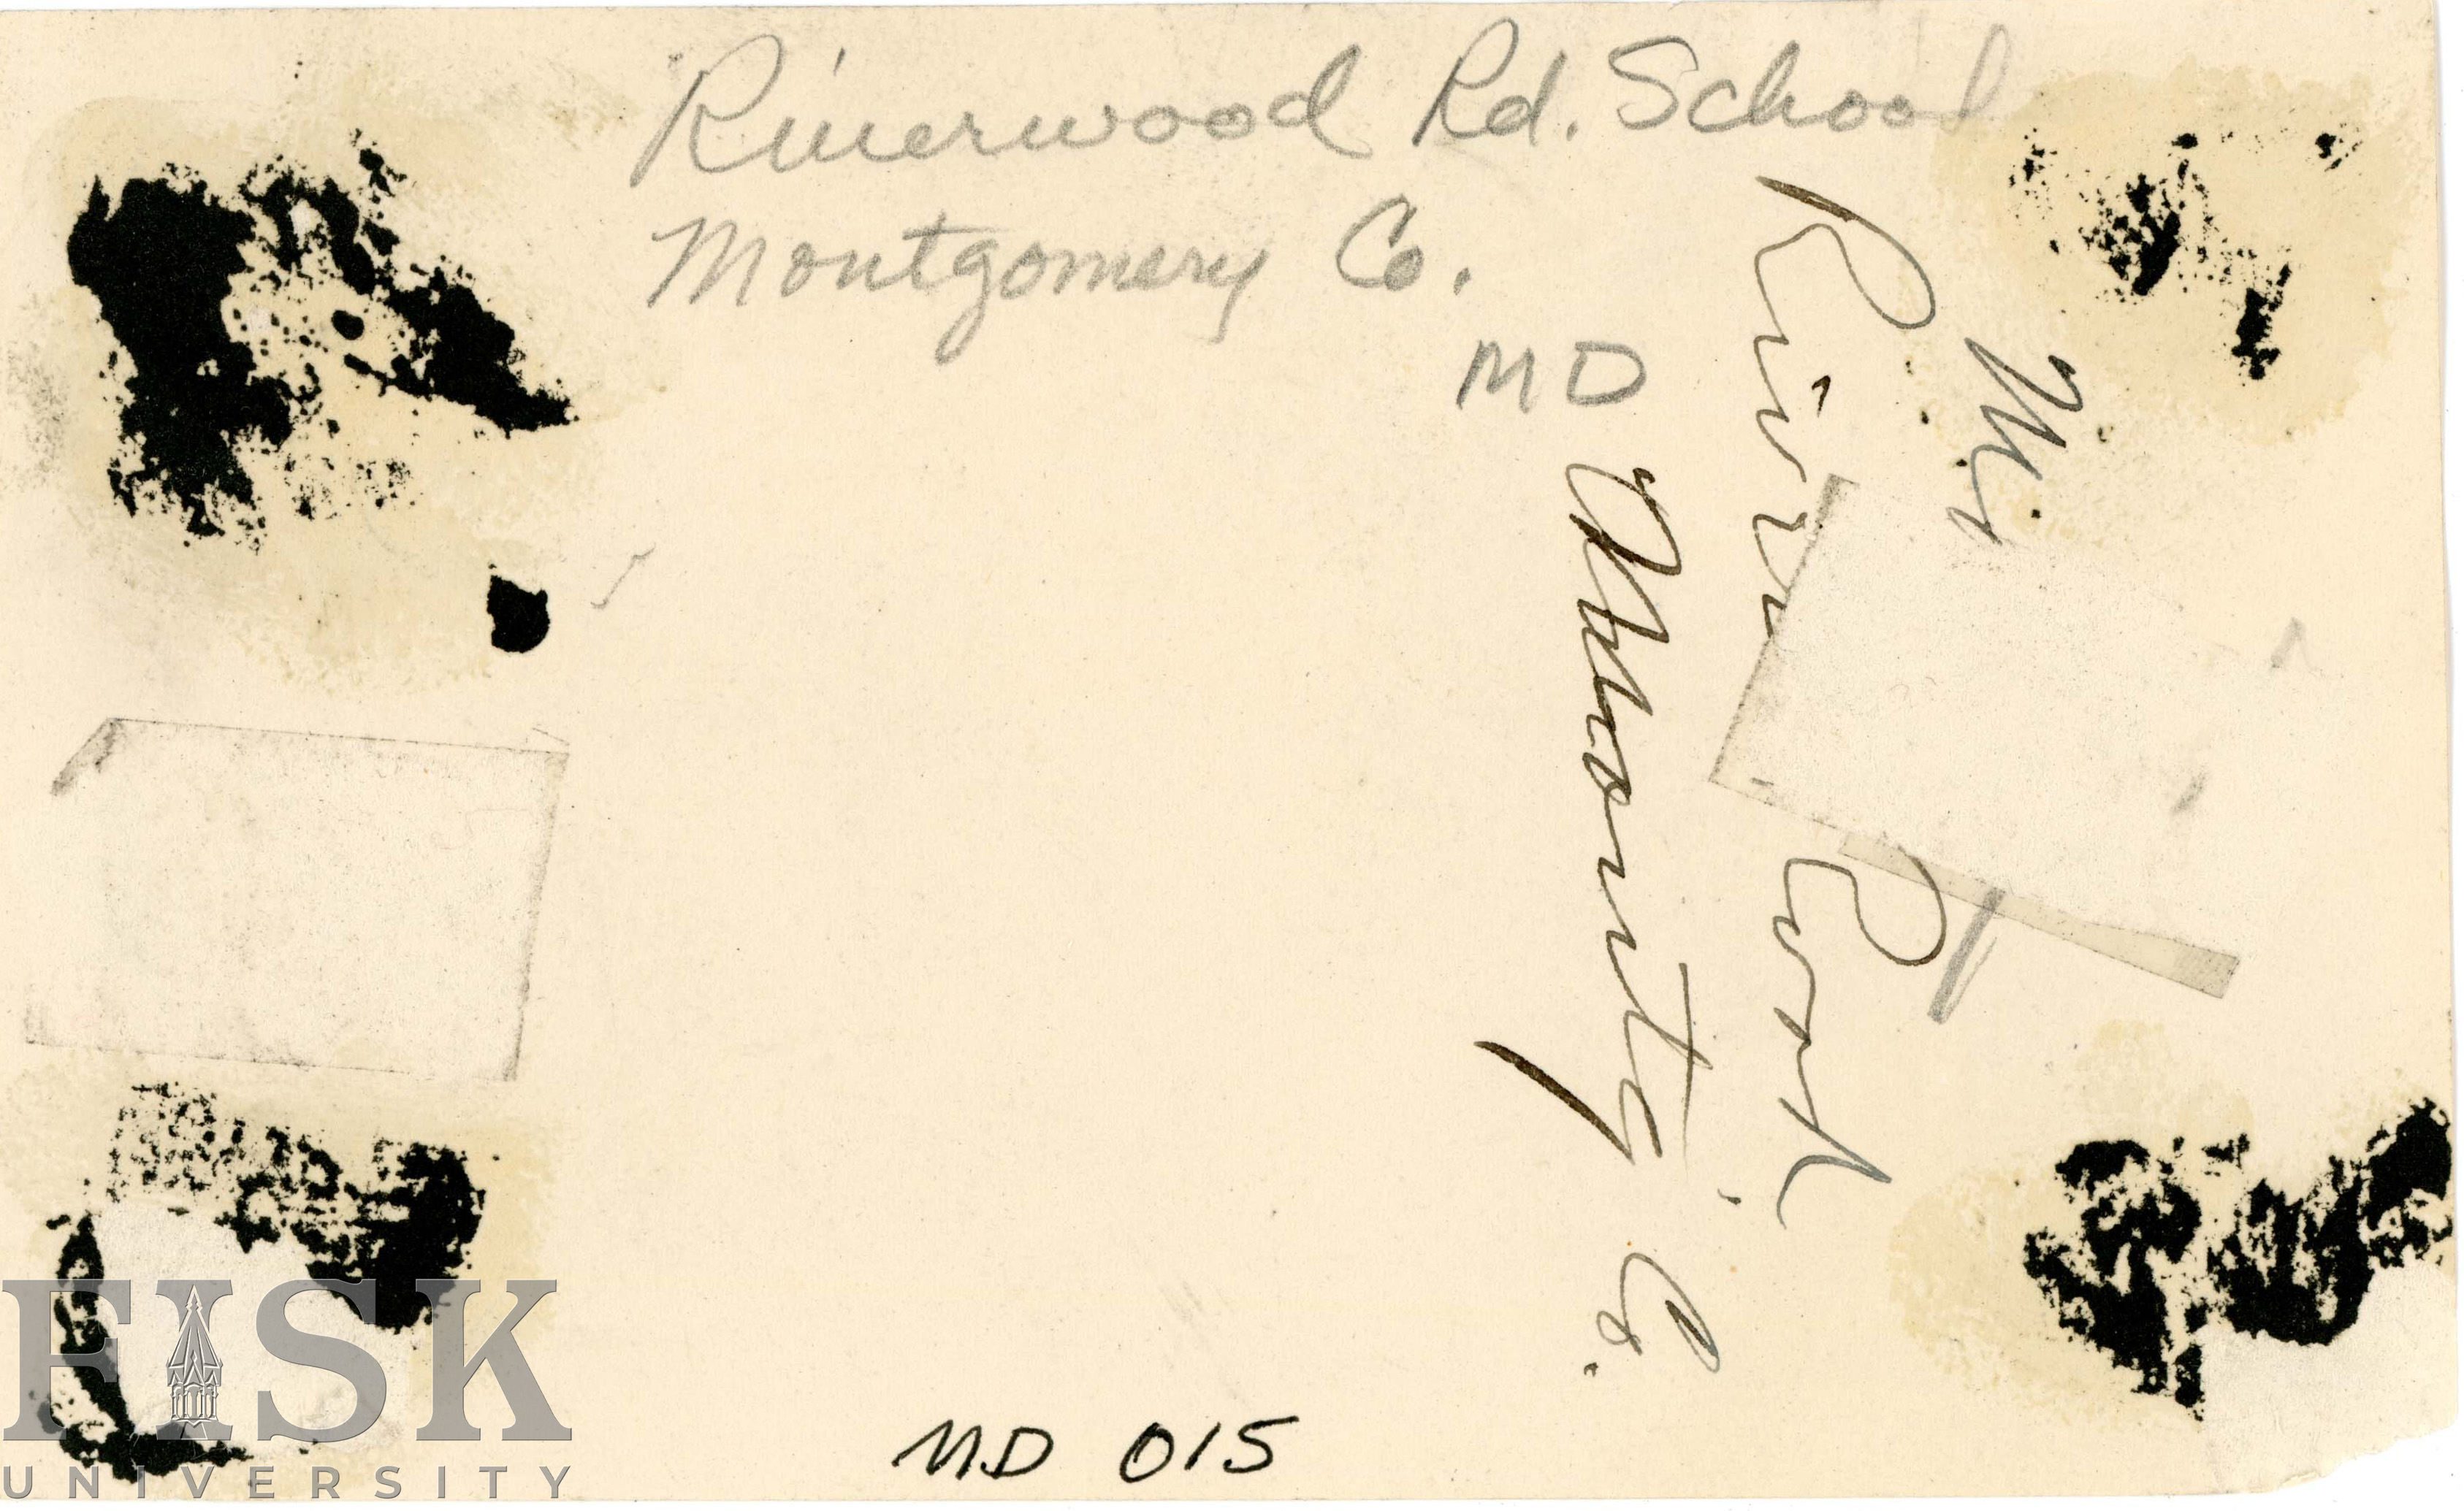 Riverwood Rd. School
Montgomery Co.
MD
River Road
Co.
MD 015
FISK
UNIVERSITY